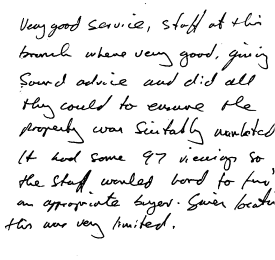 Very good service, staff at this
branch where very good, giving
sound advice and did all
they could to ensure the
property was suitably marketed
It had some 97 viewings so
the staff worked hard to find
an appropriate buyer. Given location
this was very limited.